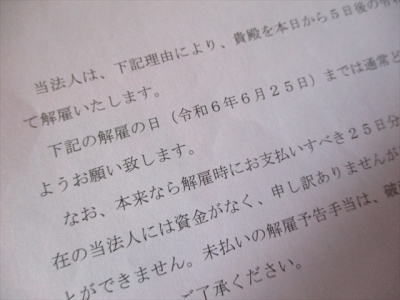 当法人は、下記理由により、貴殿を本日から５日後の令和
て解雇いたします。
下記の解雇の日（令和６年６月２５日）までは通常ど
ようお願い致します。
なお、本来なら解雇時にお支払いすべき２５日分
在の当法人には資金がなく、申し訳ありませんが
とができません。未払いの解雇予告手当は、破
ご了承ください。